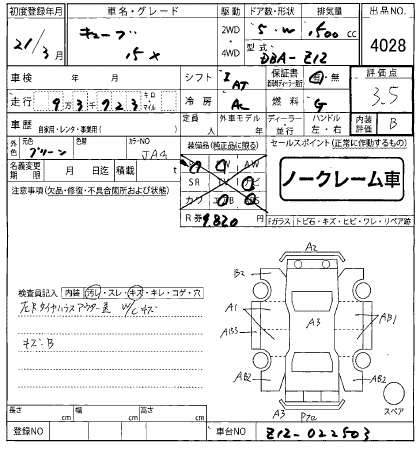 初度登録年月 車名・グレード 駆動 ドア数・形状 排気量 出品NO.
21/3月 キューブ 15X 2WD・4WD 5・W 1,500cc 4028
型式 DBA-Z12
車検 年 月 シフト I AT 保証書 有・無 評価点
走行 9万3千723 キロ マイル 冷房 AC 燃料 G 3.5
車歴 自家用・レンタ・事業用( ) 定員 人 外車モデル 年 ディーラー・並行 ハンドル 左・右 内装評価 B
外色 元色 グリーン 色替 カラーNO JAG
装備品(純正品に限る) セールスポイント(正常に作動するもの)
名義変更期限 月 日迄 積載 t
AW
SR
カワ
ノークレーム車
注意事項(欠品・修復・不具合箇所および状態)
R券 9,820円
Fガラス トビ石・キズ・ヒビ・ワレ・リペア跡
検査員記入 内装 汚れ・スレ・キズ・キレ・コゲ・穴
W/Cキズ
キズ・B
A2
B2
A1
A3
AB1
AB2
AB2
A3
スペア
長さ cm 幅 cm 高さ cm
登録NO 車台NO Z12-022503